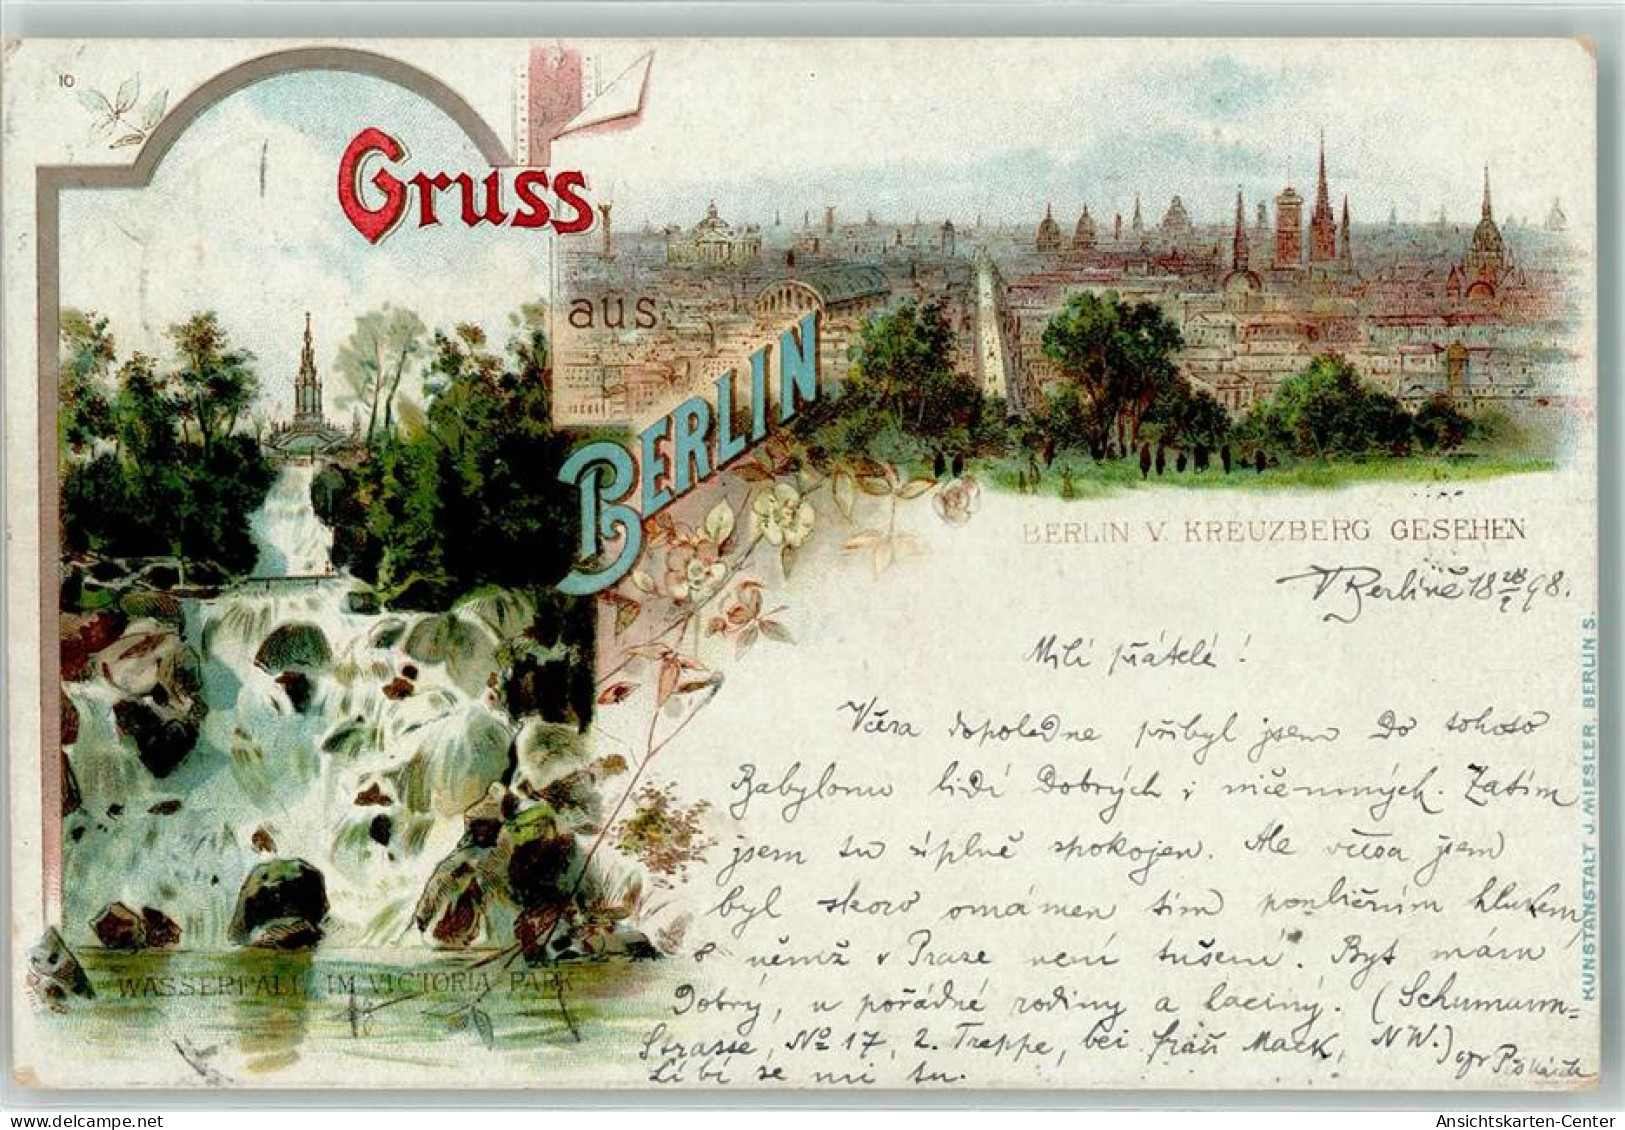 10
Gruss
aus
BERLIN
BERLIN V. KREUZBERG GESEHEN
V Berlíně 18 28/9 98.
Milí přátelé!
Včera dopoledne přibyl jsem do tohoto
Babylonu lidí dobrých i ničemných. Zatím
jsem tu úplně spokojen. Ale včera jsem
byl skoro omámen tím pouličním hlukem,
o němž v Praze není tušení. Byt mám
dobrý, u pořádné rodiny a laciný. (Schumann-
Strasse, No 17, 2. Treppe, bei Frau Mack, NW.)
Líbí se mi tu.
WASSERFALL IM VICTORIA PARK
KUNSTANSTALT J. MIESLER, BERLIN S.
Ansichtskarten-Center